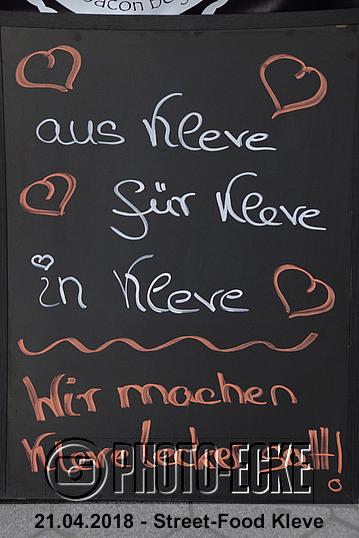 aus Kleve
für Kleve
in Kleve
Wir machen
Kleve lecker satt!
© PHOTO-ECKE
21.04.2018 - Street-Food Kleve